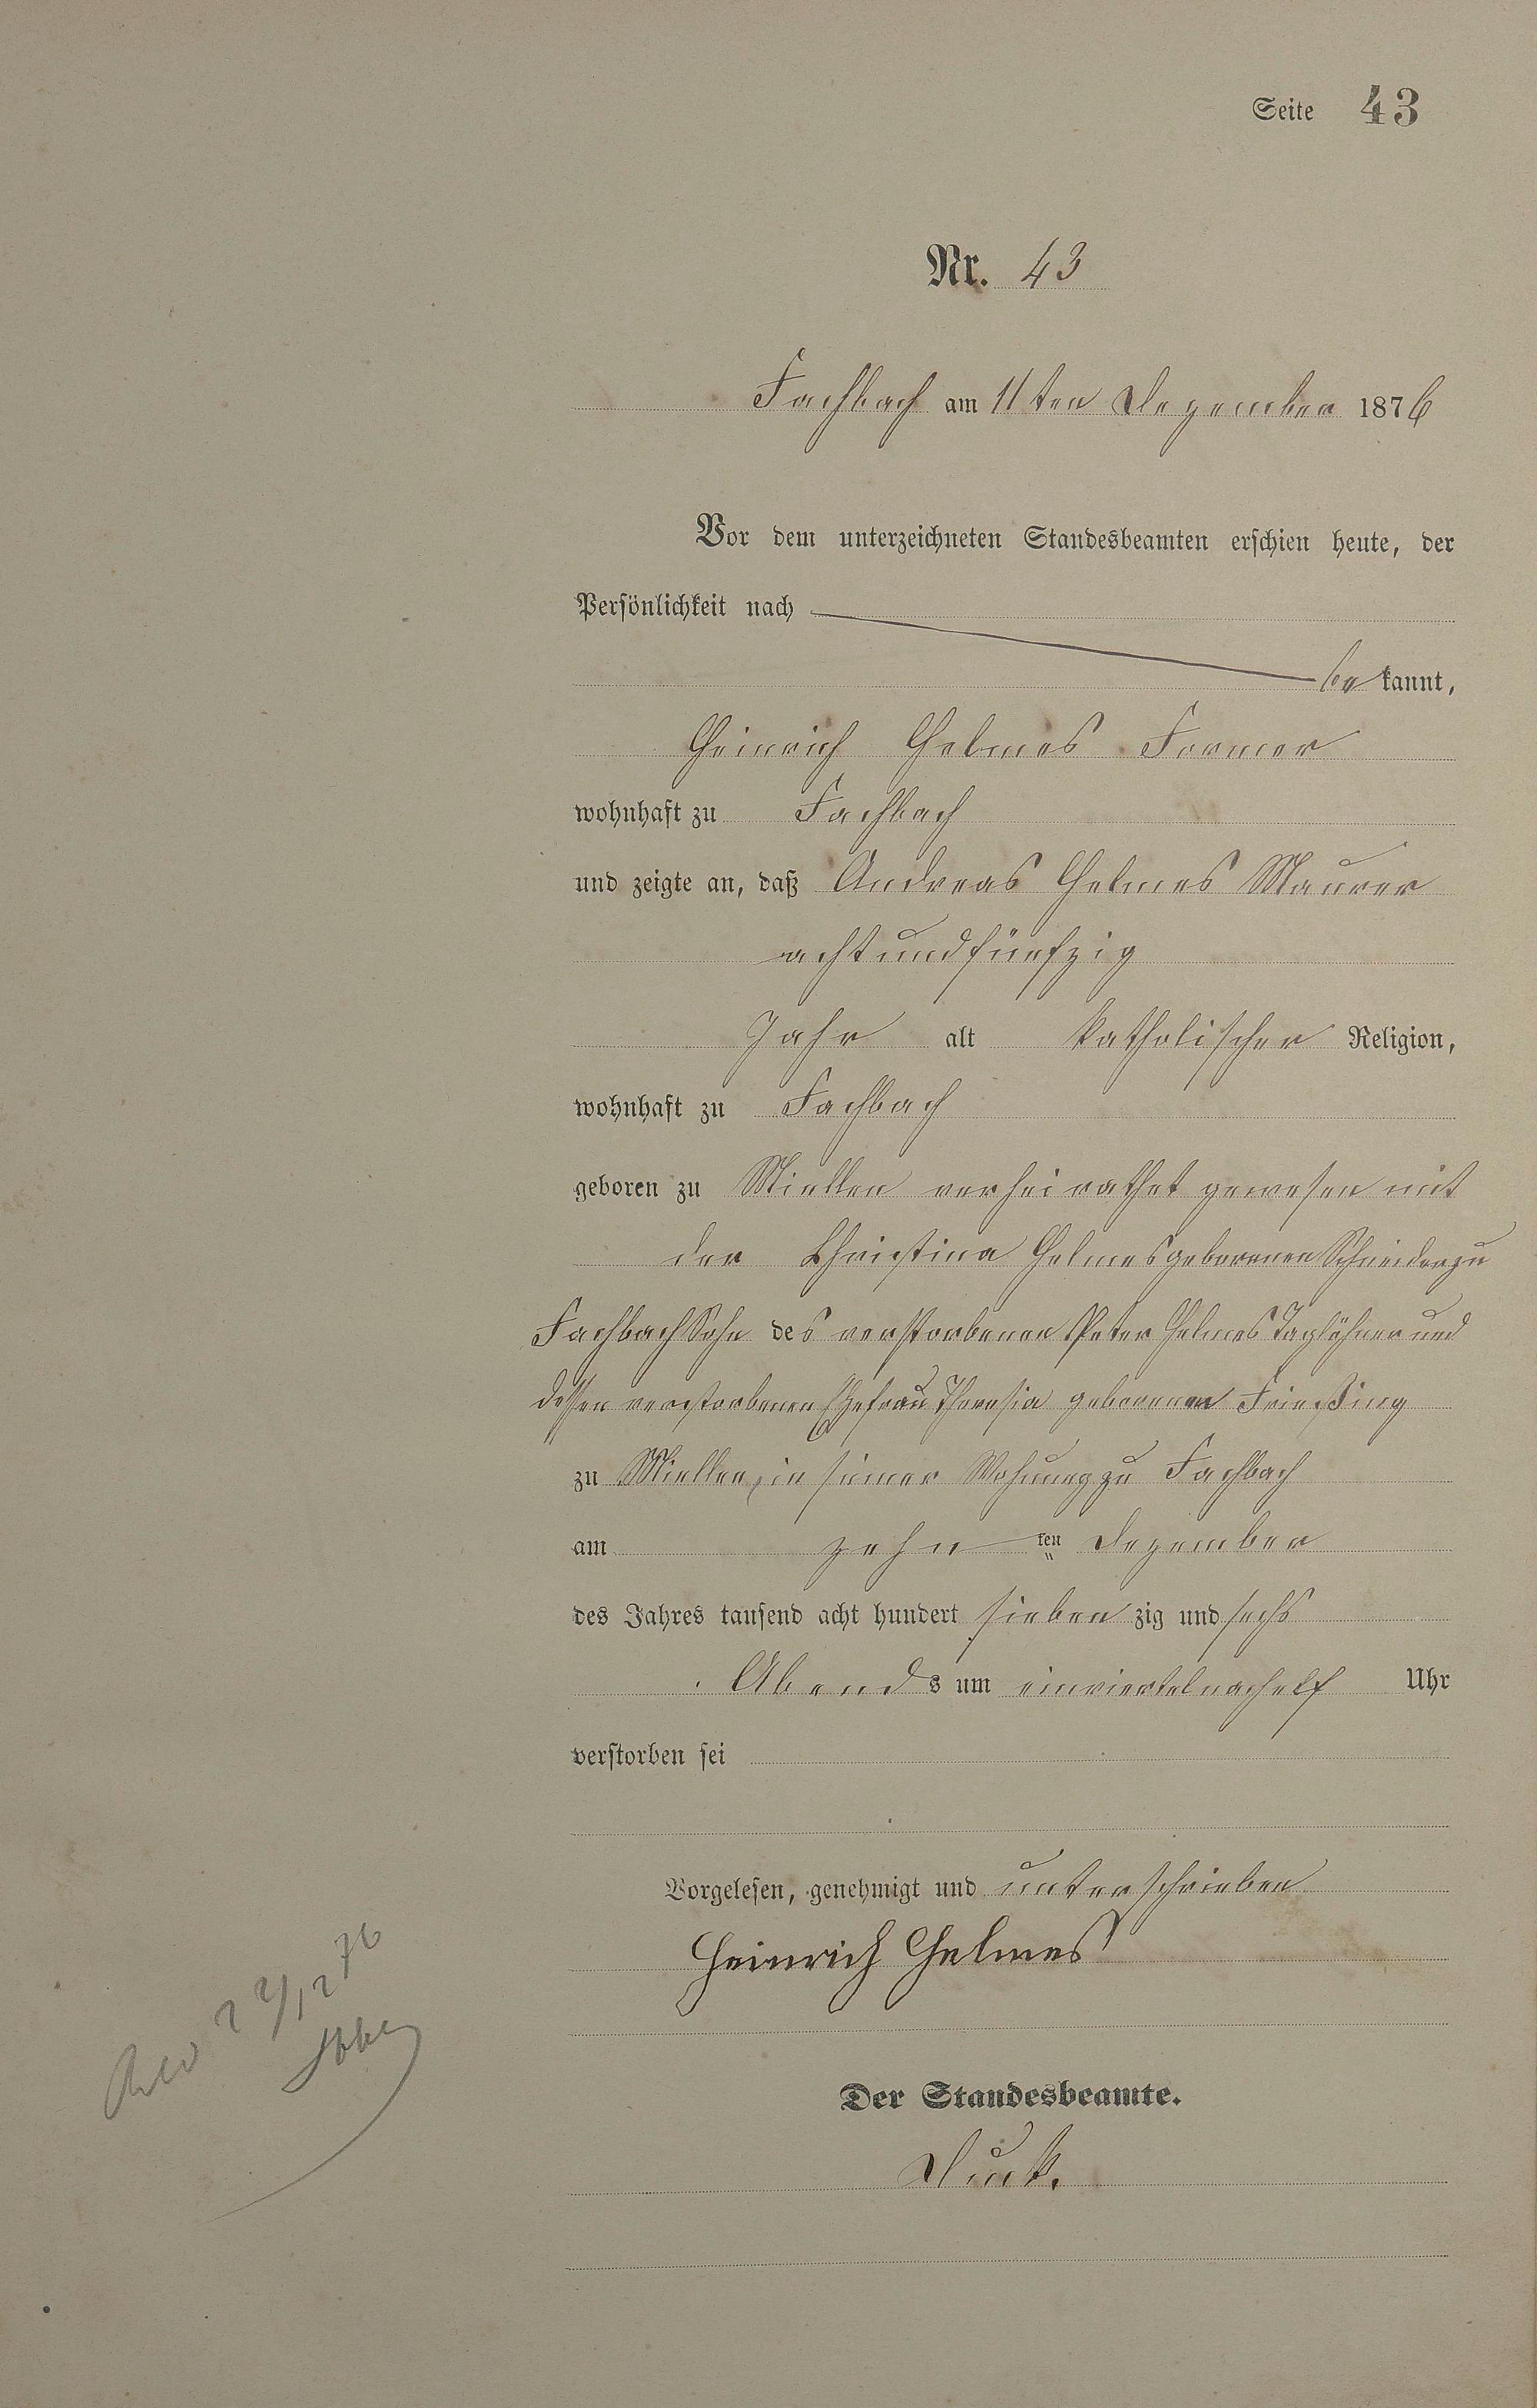 Seite 43
Nr. 43
Fachbach am 11ten Dezember 1876
Vor dem unterzeichneten Standesbeamten erschien heute, der
Persönlichkeit nach
bekannt,
Heinrich Helmes Former
wohnhaft zu Fachbach
und zeigte an, daß Andreas Helmes Maurer
achtundfünfzig
Jahr alt katholischer Religion,
wohnhaft zu Fachbach
geboren zu Miellen verheirathet gewesen mit
der Christina Helmes geborenen Schneider zu
Fachbach Sohn des verstorbenen Peter Helmes Taglöhner und
dessen verstorbenen Ehefrau Theresia geborenen
zu Miellen, in seiner Wohnung zu Fachbach
am zehnten Dezember
des Jahres tausend acht hundert siebenzig und sechs
Abends um einviertelnachelf Uhr
verstorben sei
Vorgelesen, genehmigt und unterschrieben
Heinrich Helmes
Der Standesbeamte.
Rev 22/12 76